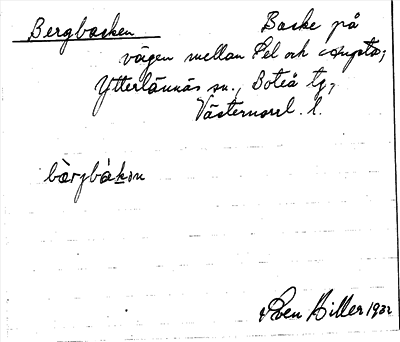 Bergbacken Backe på
vägen mellan Pel och
Ytterlännäs sn., Boteå tg,
Västernorrl. l.
bàrjbákən
Sven Hiller 1932